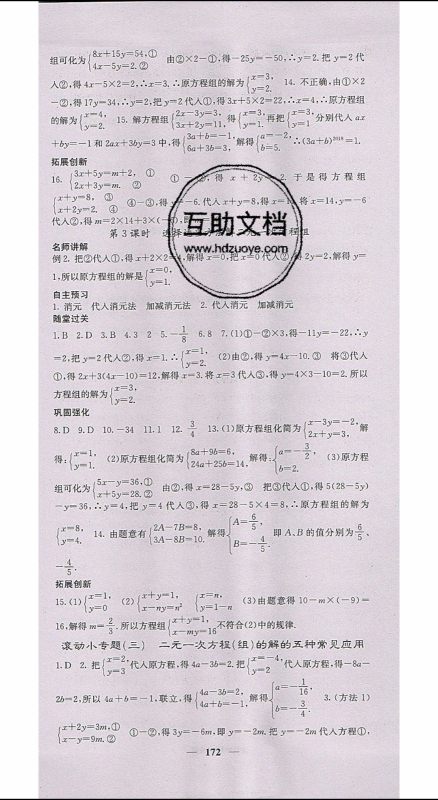 组可化为{8x+15y=54,① 4x-5y=2.② 由②×2-①,得-25y=-50,∴y=2.把y=2代
入②,得4x-5×2=2,∴x=3.∴原方程组的解为{x=3, y=2. 14. 不正确,由①×2
-②,得17y=34,∴y=2,把y=2代入①,得3x+5×2=22,∴x=4,∴原方程组
的解为{x=4, y=2. 15. 解方程组{2x-3y=3, 3x+2y=11, 得{x=3, y=1. 再把{x=3, y=1 分别代入ax
+by=-1和2ax+3by=3中,得{3a+b=-1, 6a+3b=3, 解得{a=-2, b=5. ∴(3a+b)²⁰¹⁸=1.
拓展创新
16. {3x+5y=m+2, ① 2x+3y=m. ② ①-②,得x+2y=2. 于是得方程组
{x+y=8, ③ x+2y=2. ④ ④-③,得y=-6.代入x+y=8,得x=14.将x=14,y=-6
代入②,得m=2×14+3×(-6)
第3课时 选择 方程组
互助文档
www.hdzuoye.com
名师讲解
例2. 把②代入①,得x+2×2 4,解得x=0,把x=0代入②,得2y=2,解得y=
1,所以原方程组的解是{x=0, y=1.
自主预习
1. 消元 代入消元法 加减消元法 2. 代入消元 加减消元
随堂过关
1. B 2. D 3. B 4. 3 2 5. -1/8 6. 8 7. (1)①-②×3,得-11y=-22,∴y
=2,把y=2代入②,得x=1.∴{x=1, y=2. (2)由②,得y=4x-10.③ 将③代入
①,得2x+3(4x-10)=12,解得x=3.将x=3代入③,得y=4×3-10=2.所以
方程组的解为{x=3, y=2.
巩固强化
8. D 9. D 10. -34 11. 1 12. 3/4 13. (1)原方程组化简为{x-3y=-2, 2x+y=3, 解
得:{x=1, y=1. (2)原方程组化简为{8a+9b=6, 24a+25b=14, 解得:{a=-3/2, b=2. (3)原方程
组可化为{5x-y=36,① x+5y=28.② 由②,得x=28-5y,③ 把③代入①,得5(28-5y)
-y=36,∴y=4,把y=4代入③,得x=28-5×4=8,∴原方程组的解为
{x=8, y=4. 14. 由题意有{2A-7B=8, 3A-8B=10. 解得{A=6/5, B=-4/5. 即A、B的值分别为6/5、
-4/5.
拓展创新
15. (1){x=1, y=0 (2){x+y=1, x-ny=n² {x=n, y=1-n (3)由题意得10-m×(-9)=
16,解得m=2/3. 所以方程组{x+y=1, x-my=16 不符合(2)中的规律.
滚动小专题(三) 二元一次方程(组)的解的五种常见应用
1. D 2. 把{x=2, y=3 代入原方程,得4a-3b=2.把{x=-4, y=2 代入原方程,得-8a-
2b=2,所以4a+b=-1.联立,得{4a-3b=2, 4a+b=-1. 解得{a=-1/16, b=-3/4. 3. (方法1)
{x+2y=3m,① x-y=9m.② ①-②,得3y=-6m,即y=-2m.把y=-2m代入方程①,
172